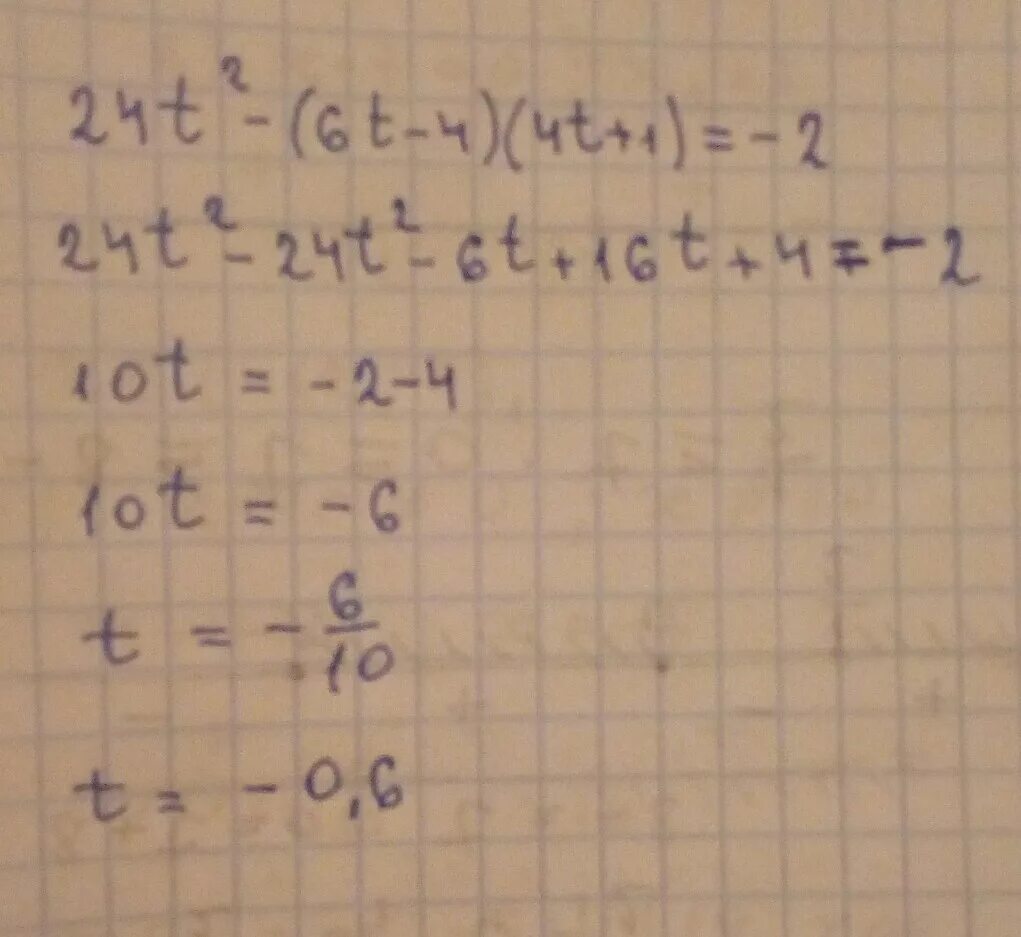 24t² - (6t-4)(4t+1) = -2
24t² - 24t² - 6t + 16t + 4 = -2
10t = -2-4
10t = -6
t = - 6/10
t = - 0,6